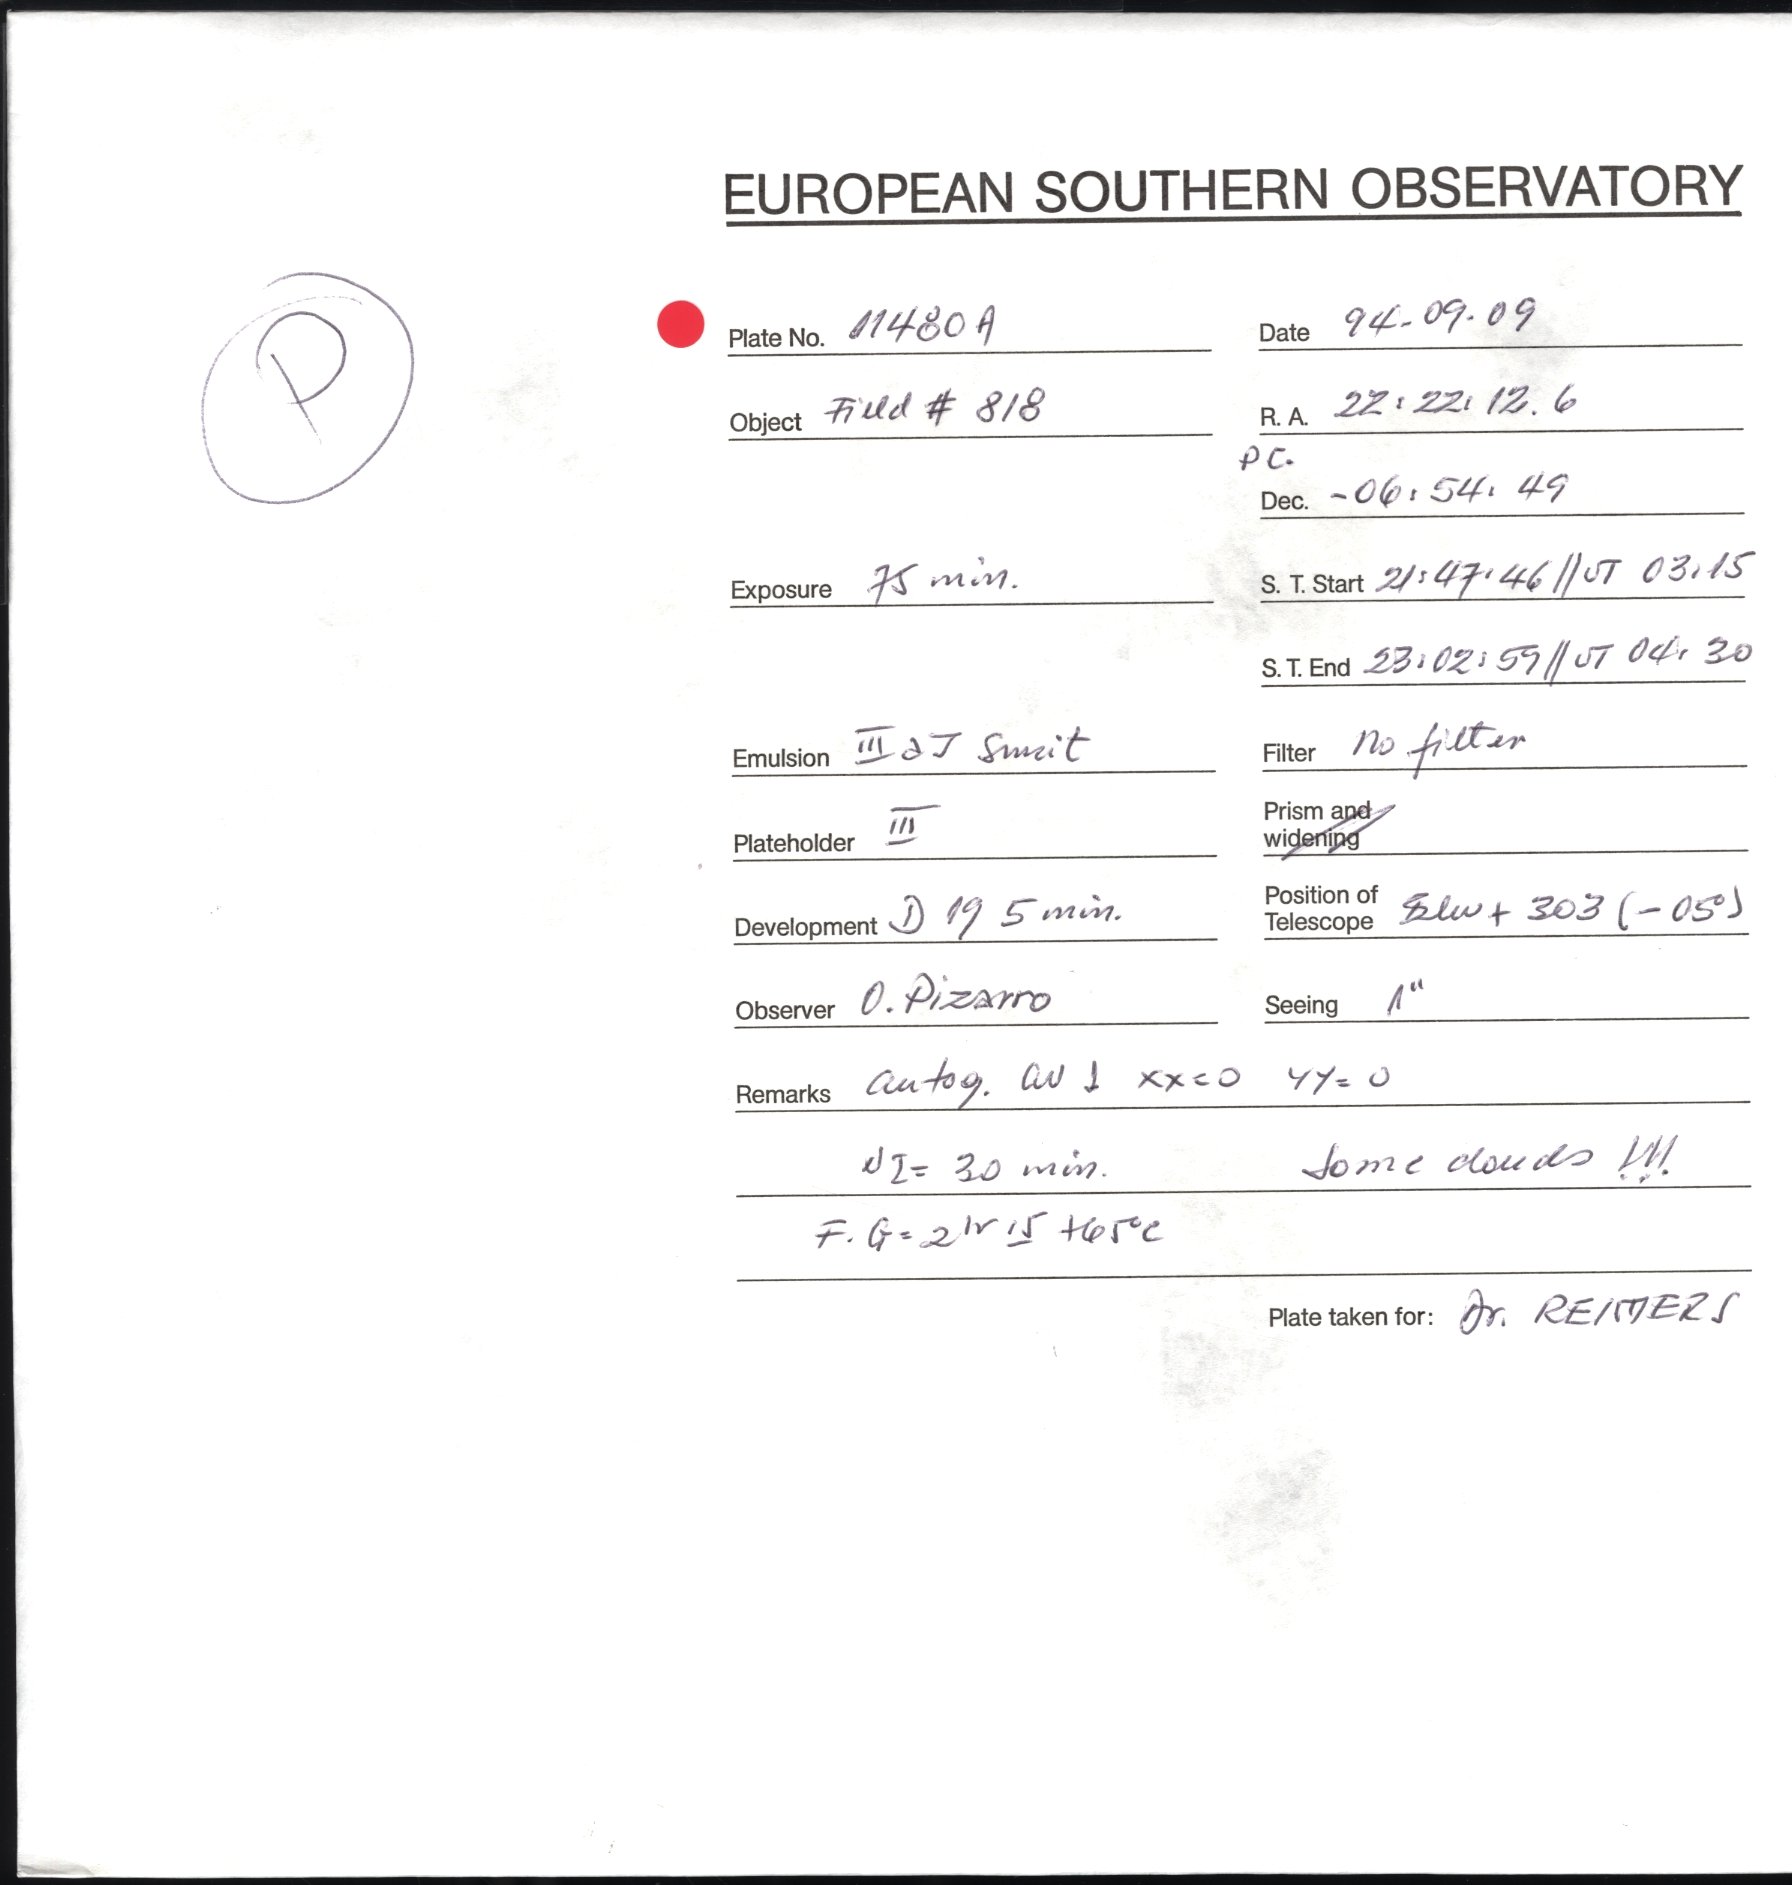 EUROPEAN SOUTHERN OBSERVATORY
P
Plate No. 11480A Date 94-09-09
Object Field # 818 R. A. 22:22:12.6
PC.
Dec. -06:54:49
Exposure 75 min. S. T. Start 21:47:46 // UT 03:15
S. T. End 23:02:59 // UT 04:30
Emulsion III aJ Filter no filter
Plateholder III Prism and widening
Development D 19 5 min. Position of Telescope + 303 (-05°)
Observer O. Pizarro Seeing 1"
Remarks autog. xx=0 YY=0
= 30 min. Some clouds !!!
F. G = 2hr 15 +65°C
Plate taken for: Dr. REIMERS